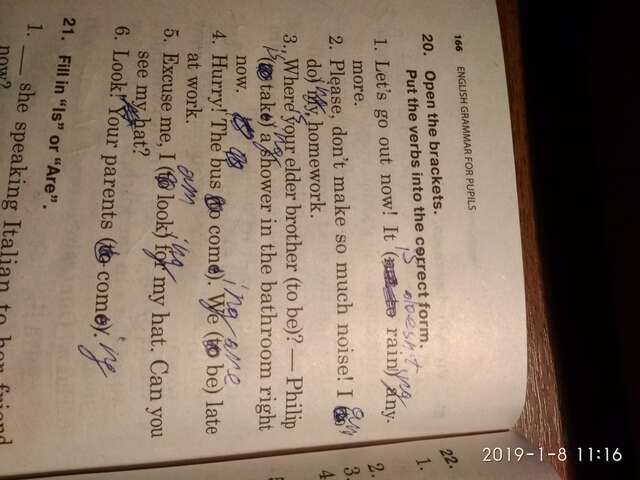 166 ENGLISH GRAMMAR FOR PUPILS
20. Open the brackets.
Put the verbs into the correct form.
is doesn't ing
1. Let's go out now! It ( rain) any
more.
2. Please, don't make so much noise! I (to am
do) ing my homework.
3. Where is your elder brother (to be)? — Philip
is (to take) ing a shower in the bathroom right
now.
4. Hurry! The bus is (to come) ing. We (to be) are late
at work.
5. Excuse me, I am (to look) ing for my hat. Can you
see my hat?
6. Look! Your parents (to come) ing.
21. Fill in "Is" or "Are".
1. ___ she speaking Italian to her friend
now?
22.
1.
2.
3.
4.
2019-1-8 11:16